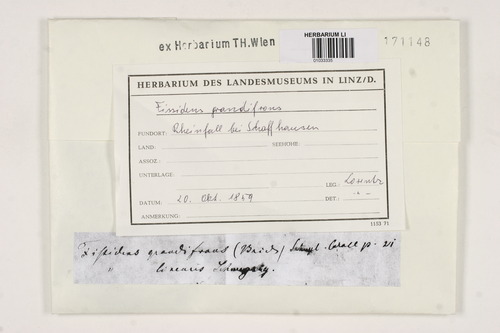 ex Herbarium TH.Wien
HERBARIUM LI
01033335
171148
HERBARIUM DES LANDESMUSEUMS IN LINZ/D.
Fissidens grandifrons
FUNDORT: Rheinfall bei Schaffhausen
LAND: SEEHÖHE:
ASSOZ.:
UNTERLAGE:
LEG.: Lorentz
DATUM: 20. Okt. 1859 DET.: - " -
ANMERKUNG:
1153 71
Fissidens grandifrons (Brid.) p. 21
" linearis